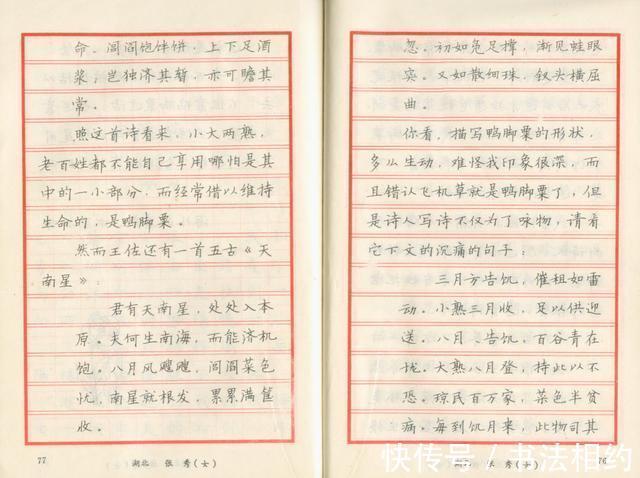 忽。初如凫足撑，渐见蛙眼
突。又如散细珠，钗头横屈
曲。
你看，描写鸭脚粟的形状，
多么生动，难怪我印象很深，而
且错认飞机草就是鸭脚粟了，但
是诗人写诗不仅为了咏物，请看
它下文的沉痛的句子：
三月方告饥，催租如雷
动。小熟三月收，足以供迎
送。八月又告饥，百谷青在
垅。大熟八月登，持此以不
恐。琼民百万家，菜色半贫
病。每到饥月来，此物司其
76
湖北 张 秀(女)
命。闾阎饱饼，上下足酒
浆，岂独济其暂，亦可赡其
常。
照这首诗看来，小大两熟，
老百姓都不能自己享用哪怕是其
中的一小部分，而经常借以维持
生命的，是鸭脚粟。
然而王佐还有一首五古《天
南星》：
君有天南星，处处入本
草。夫何生南海，而能济饥
饱。八月风飕飕，闾阎菜色
忧，南星就根发，累累满筐
收。
77
湖北 张 秀(女)
快传号／书法相约